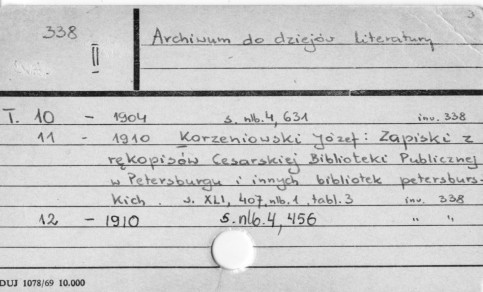 338
II
Archiwum do dziejów Literatury
T. 10 - 1904 s. nlb. 4, 631 inv. 338
11 - 1910 Korzeniowski Józef: Zapiski z
rękopisów Cesarskiej Biblioteki Publicznej
w Petersburgu i innych bibliotek petersburs-
kich. s. XLI, 407, nlb. 1, tabl. 3 inv. 338
12 - 1910 s. nlb. 4, 456 " "
DUJ 1078/69 10.000